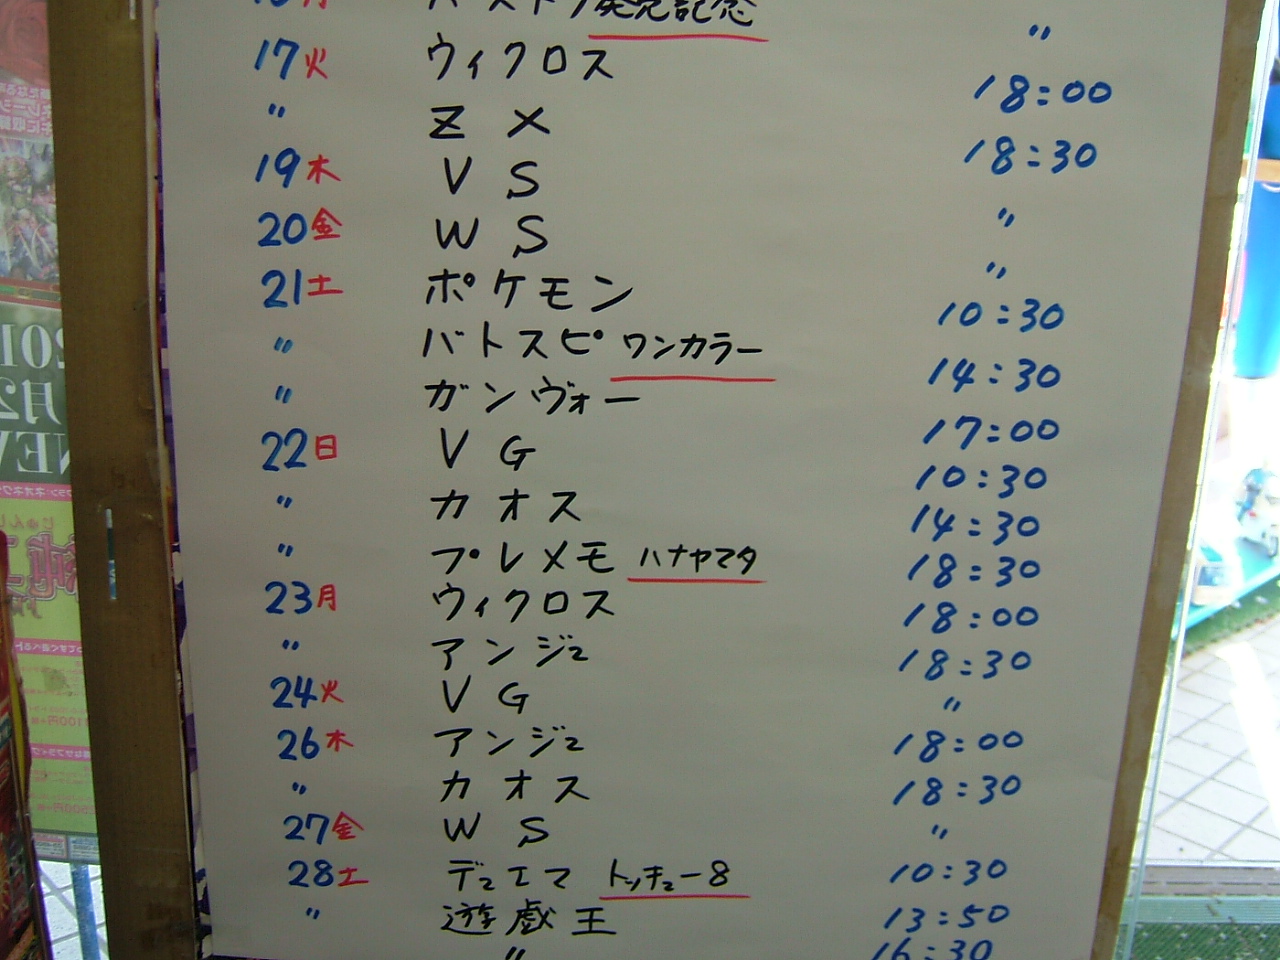 発売記念 〃
17火 ウィクロス 18:00
〃 Z X 18:30
19木 V S 〃
20金 W S 〃
21土 ポケモン 10:30
〃 バトスピ ワンカラー 14:30
〃 ガンヴォー 17:00
22日 V G 10:30
〃 カオス 14:30
〃 プレメモ ハナヤマタ 18:30
23月 ウィクロス 18:00
〃 アンジュ 18:30
24火 V G 〃
26木 アンジュ 18:00
〃 カオス 18:30
27金 W S 〃
28土 デュエマ トッキュー8 10:30
〃 遊戯王 13:50
〃 16:30